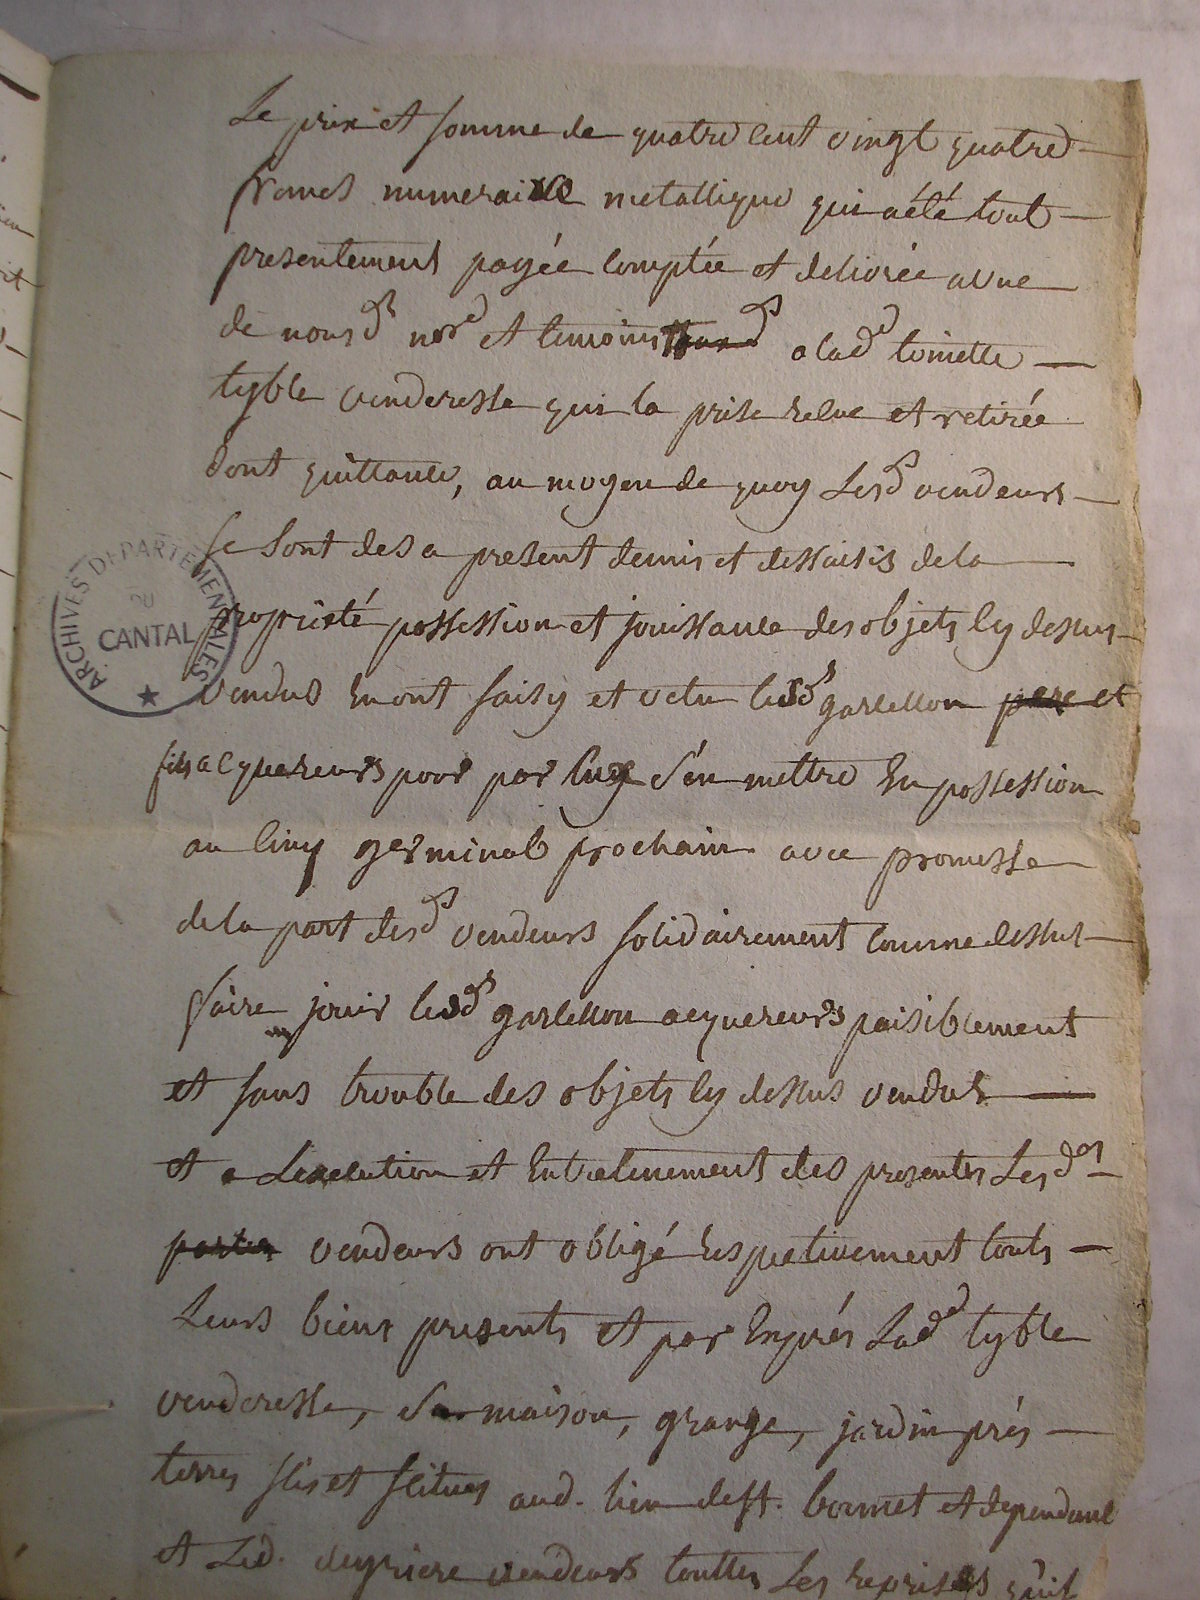 Le prix et somme de quatre cent vingt quatre
francs numeraire metallique qui a été tout
presentement payée comptée et delivrée a vue
de nousd. nore et temoins a lad. toinette
tyble venderesse qui la prise relue et retirée
dont quittance, au moyen de quoy Lesd. vendeurs
se sont des a present demis et dessaisis de la
propriété possession et jouissance des objets cy dessus
vendus en ont saisy et vetu lesd. garcellon pere et
fils acquereurs pour par luy s'en mettre En possession
au cinq germinal prochain avec promesse
de la part desd. vendeurs solidairement comme dessus
faire jouir lesd. garcellon acquereurs paisiblement
et sans trouble des objets cy dessus vendus
et a Lexecution et Entretenement des presentes Lesd.
parties vendeurs ont obligé respectivement touts
Leurs biens presents et par Exprés Lad. tyble
venderesse, sa maison, grange, jardin prés
terres sis et scitués aud. lieu de st. bonnet et dependance
et Led. veyriere vendeurs touttes Les reprises qu'il
ARCHIVES DEPARTEMENTALES
DU
CANTAL